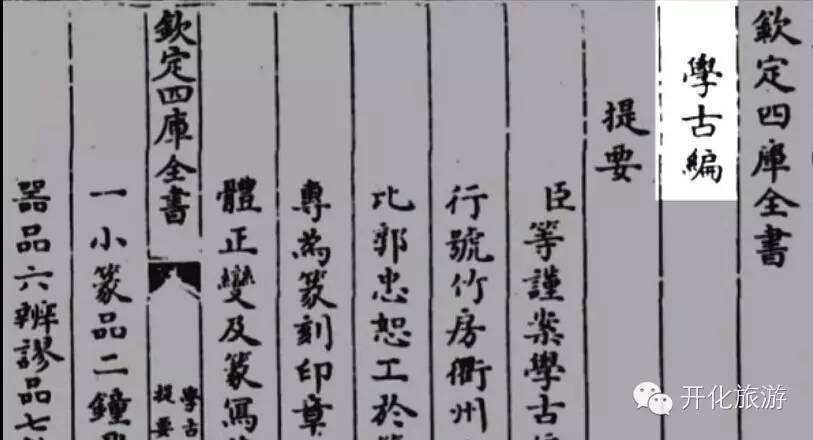 欽定四庫全書
學古編
提要
臣等謹案學古
行號竹房衢州
比郭忠恕工於
專為篆刻印章
體正變及篆寫
欽定四庫全書
學古
提要
一小篆品二鐘
器品六辨謬品七
开化旅游